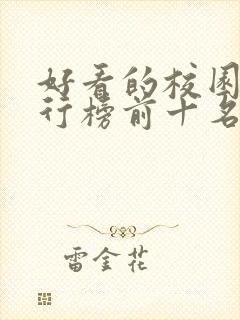 好看的校园
行榜前十名
雷金花